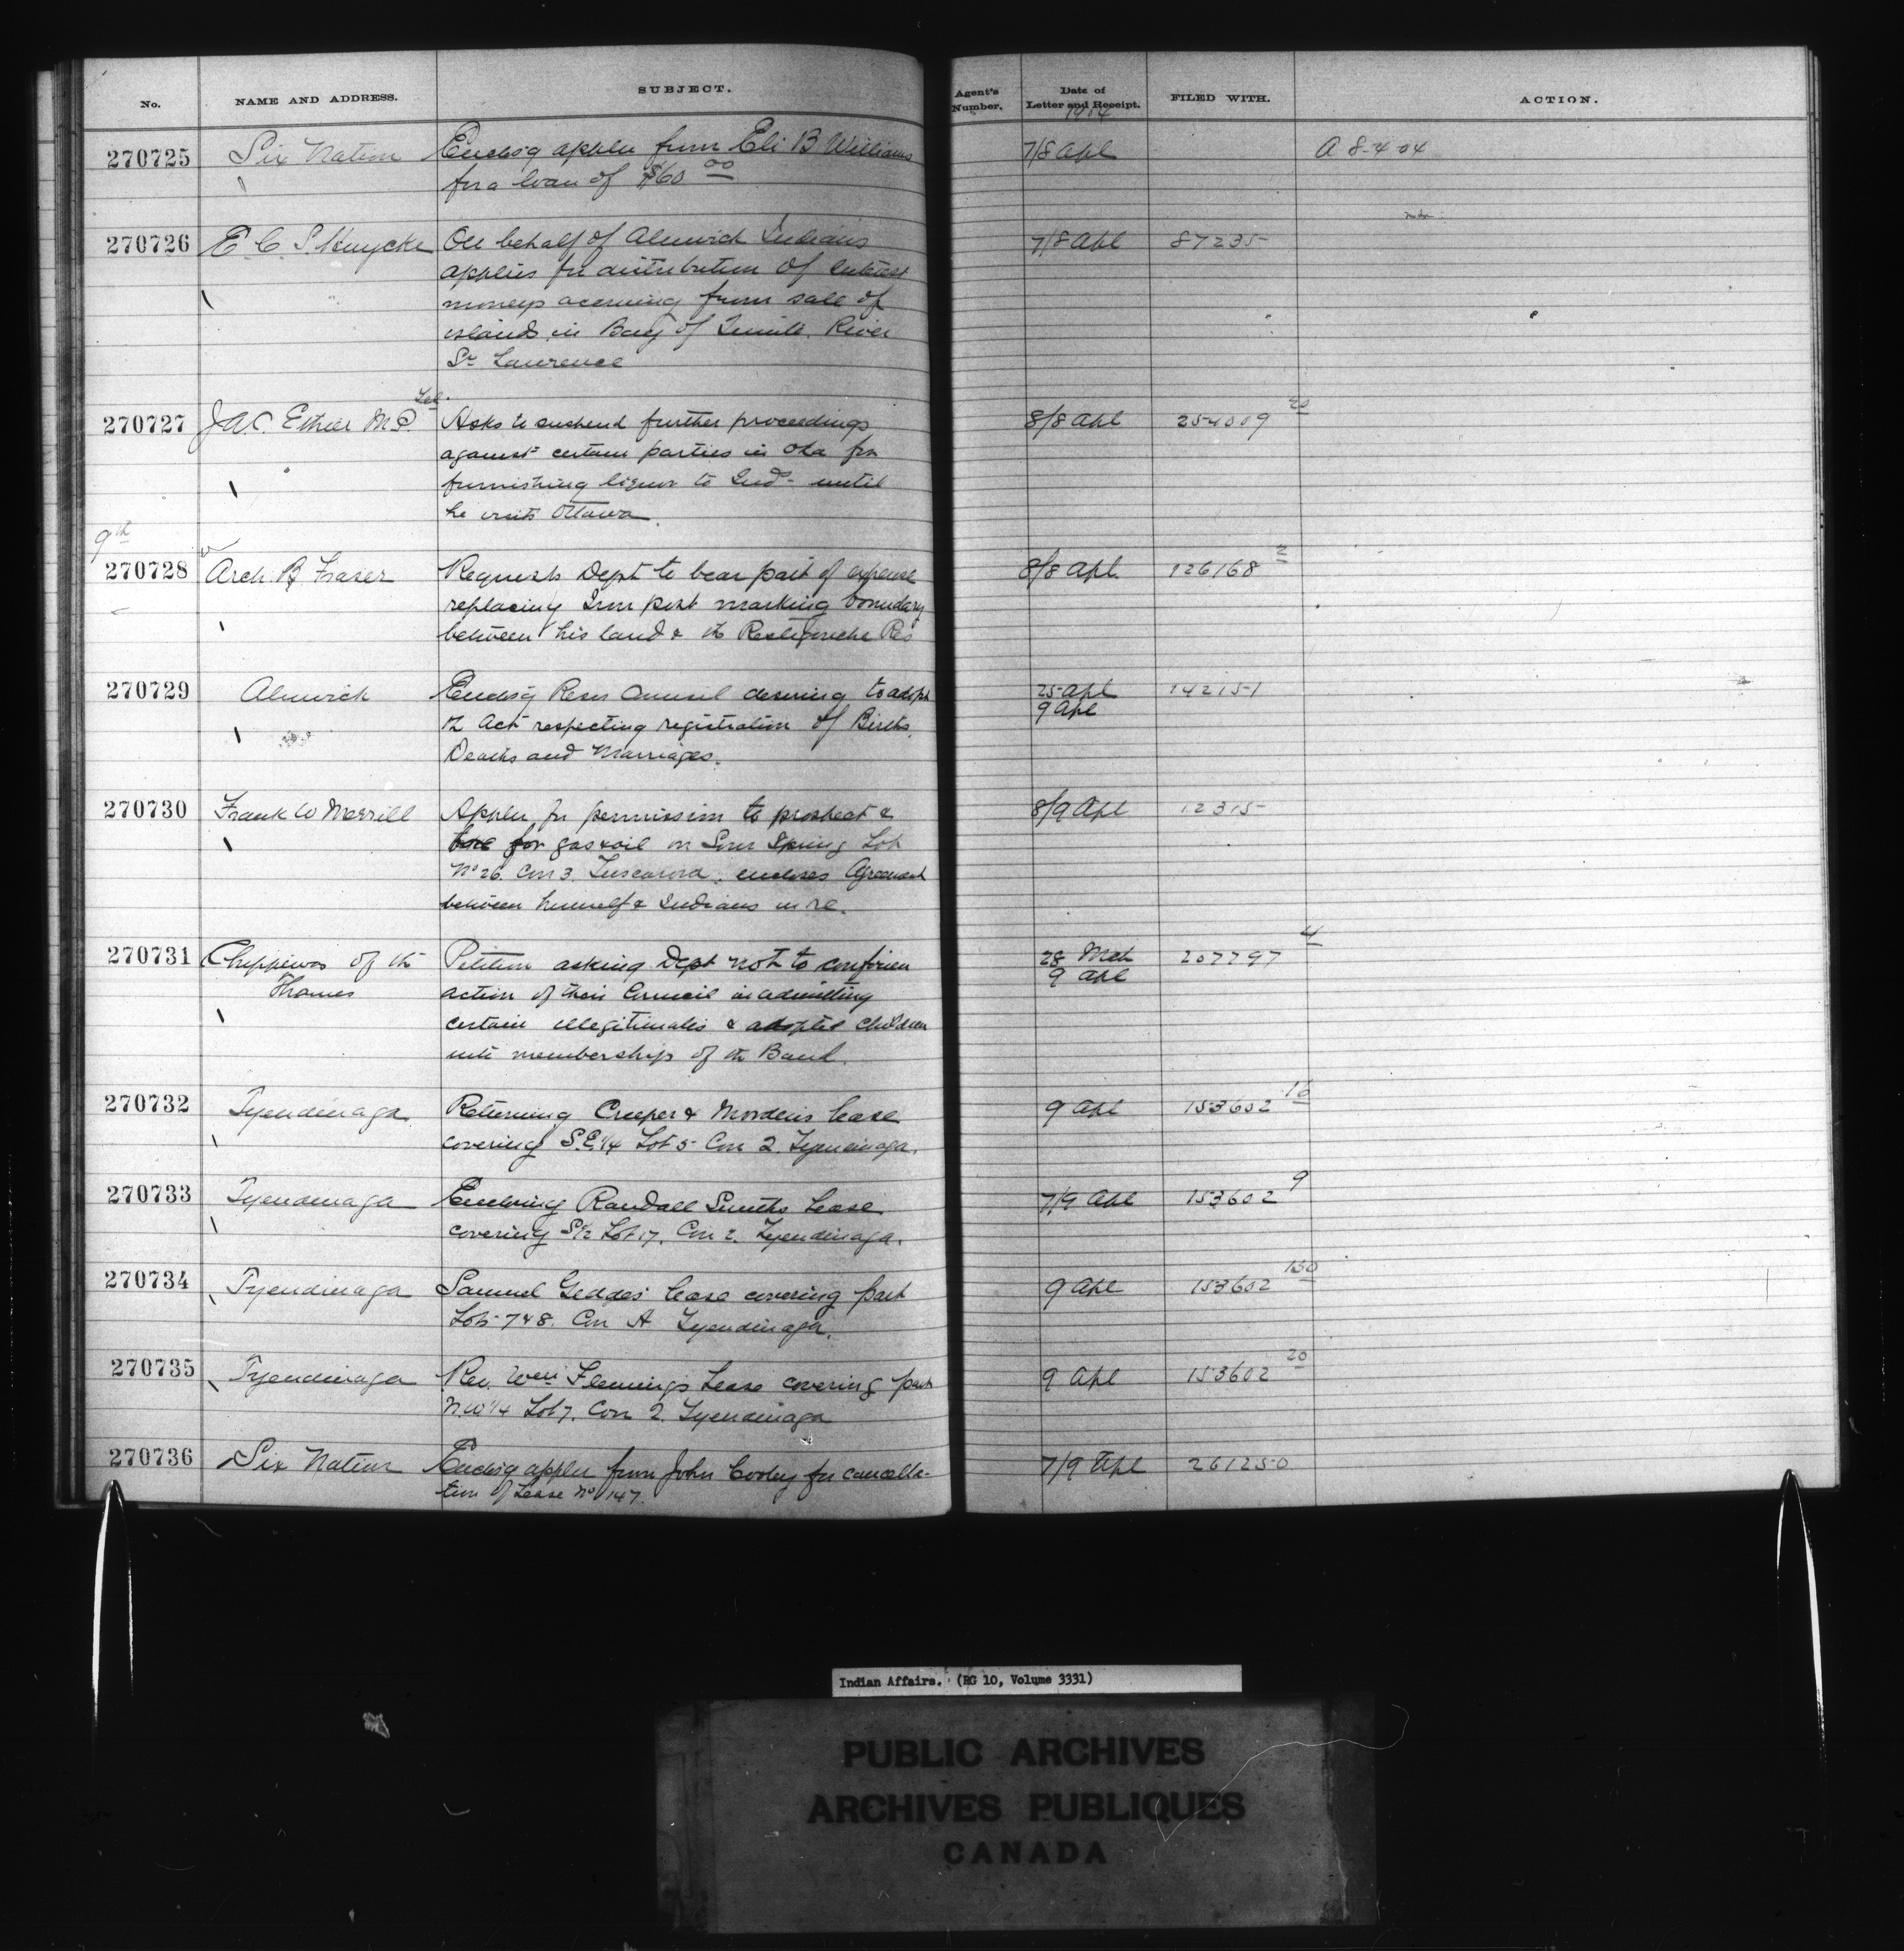 No. NAME AND ADDRESS. SUBJECT. Agent's Number. Date of Letter and Receipt. FILED WITH. ACTION.
1904
270725 Six Nation Enclos'g applen from Eli B Williams 7/8 Apl A 8-4-04
" for a loan of $60 00
270726 E. C. S. Huycke On behalf of Alnwick Indians 7/8 Apl 87235
applies for distribution of interest
moneys accruing from sale of
islands in Bay of Quinté, River
St Lawrence
Tel.
270727 J A. C. Ethier M.P. Asks to suspend further proceedings 8/8 Apl 254009 20
against certain parties in Oka for
furnishing liquor to Inds until
he visits Ottawa.
9th
270728 Arch. B Fraser Requests Dept to bear part of expense 8/8 Apl. 126168 2
replacing Iron post marking boundary
between his land & the Restigouche Res
270729 Alnwick Enclos'g Resn Council desiring to adopt 25 Apl 142151
the Act respecting registration of Births, 9 Apl
Deaths and Marriages.
270730 Frank W Merrill Applen for permission to prospect & 8/9 Apl 12315
bore for gas & oil on Sour Spring Lot
No 26. Con 3. Tuscarora. encloses Agreement
between himself & Indians in re.
270731 Chippewas of the Thames Petition asking Dept not to confirm 28 Mch 207797 4
action of their Council in admitting 9 Apl
certain illegitimates & adopted children
into memberships of the Band.
270732 Tyendinaga Returning Creeper & Morden's lease 9 Apl 153602 16
covering S.E. 1/4 Lot 5 Con 2. Tyendinaga.
270733 Tyendinaga Enclosing Randall Smiths Lease 7/9 Apl 153602 9
covering S 1/2 Lot 17. Con 2. Tyendinaga.
270734 Tyendinaga Samuel Geddes' lease covering part 9 Apl 153602 130
Lots 7 & 8. Con A Tyendinaga.
270735 Tyendinaga Rev. Wm Fleming's Lease covering part 9 Apl 153602 20
N.W 1/4 Lot 7. Con 2. Tyendinaga
270736 Six Nation Enclos'g applen from John Cooley for cancella- 7/9 Apl 261250
tion of Lease No 147.
Indian Affairs. (RG 10, Volume 3331)
PUBLIC ARCHIVES
ARCHIVES PUBLIQUES
CANADA